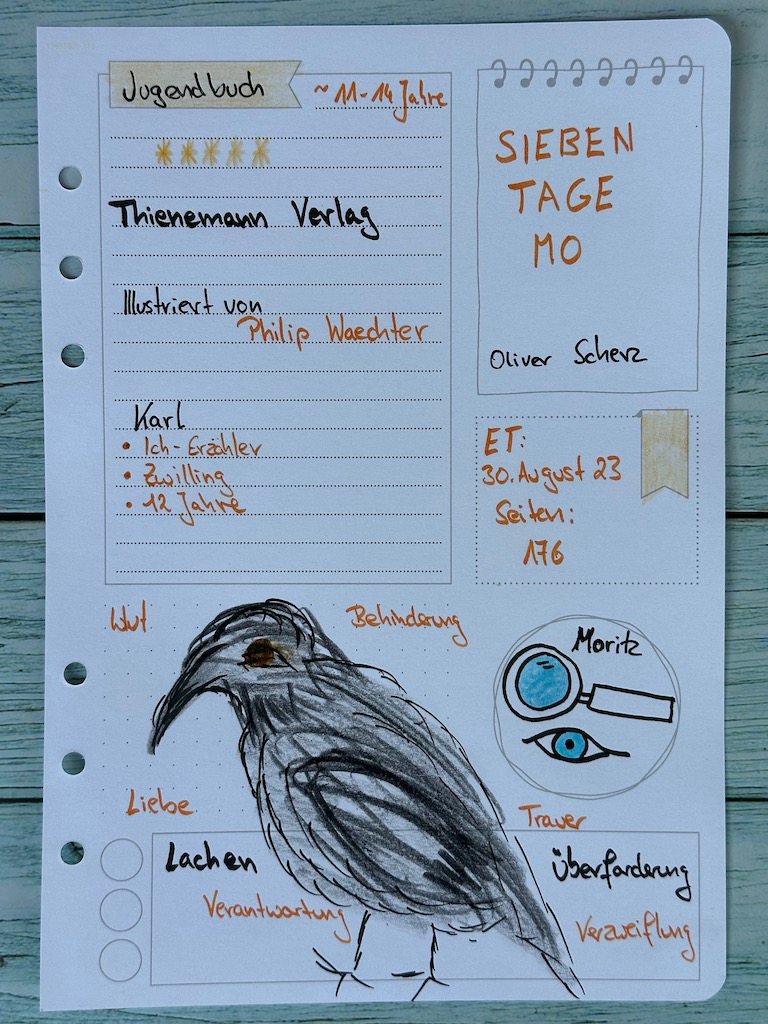 Jugendbuch
~ 11-14 Jahre
Thienemann Verlag
Illustriert von
Philip Waechter
Karl
• Ich-Erzähler
• Zwilling
• 12 Jahre
SIEBEN
TAGE
MO
Oliver Scherz
ET:
30. August 23
Seiten:
176
Wut
Behinderung
Moritz
Liebe
Trauer
Lachen
Verantwortung
Überforderung
Verzweiflung